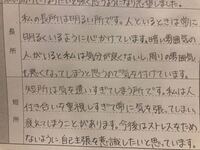 長所
私の長所は明るい所です。人といるときは常に
明るくいるように心がけています。暗い雰囲気の
人がいると私は気分が良くないし、周りの雰囲気
も悪くなってしまうと思うので気を付けています。
短所
短所は気を遣いすぎてしまう所です。私は人
付き合いを重視しすぎて常に気を張ってしまい、
疲れてしまうことがあります。今後はストレスをため
ないように自己主張を意識したいと思っています。